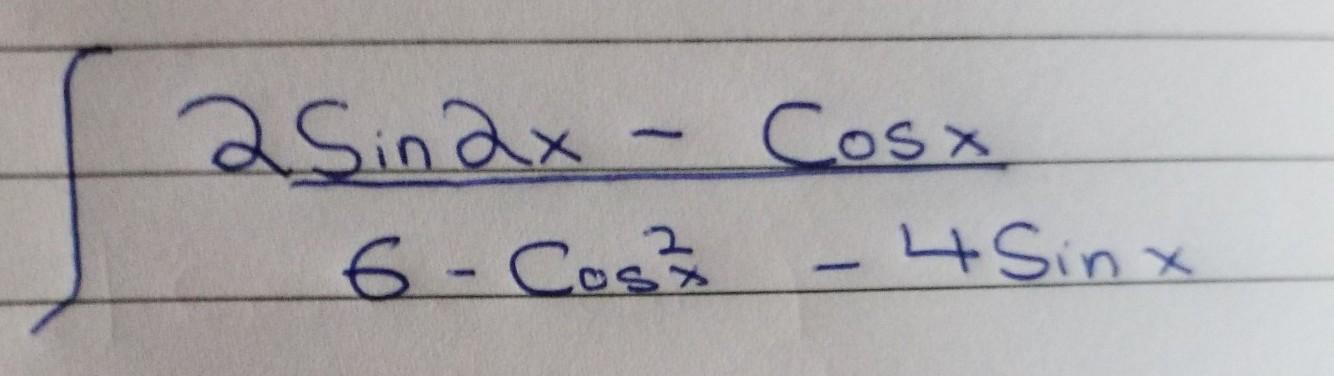 ∫ 2Sin2x - Cosx
6 - Cos²x - 4Sinx